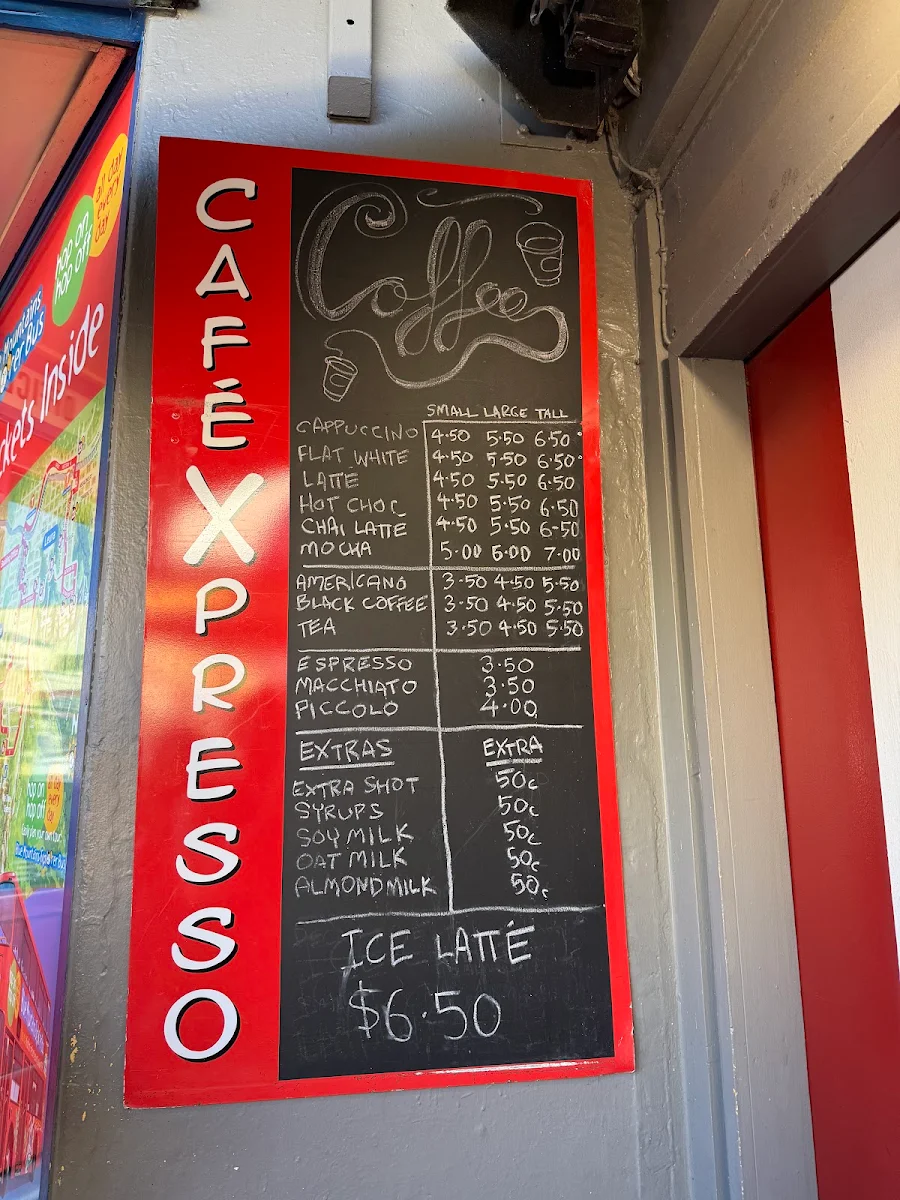 all day
every
day
hop on
hop off
Mountains
Bus
Inside
CAFÉXPRESSO
Coffee
SMALL LARGE TALL
CAPPUCCINO 4.50 5.50 6.50
FLAT WHITE 4.50 5.50 6.50
LATTE 4.50 5.50 6.50
HOT CHOC 4.50 5.50 6.50
CHAI LATTE 4.50 5.50 6-50
MOCHA 5.00 6.00 7.00
AMERICANO 3.50 4.50 5.50
BLACK COFFEE 3.50 4.50 5.50
TEA 3.50 4.50 5.50
ESPRESSO 3.50
MACCHIATO 3.50
PICCOLO 4.00
EXTRAS EXTRA
EXTRA SHOT 50c
SYRUPS 50c
SOY MILK 50c
OAT MILK 50c
ALMOND MILK 50c
ICE LATTÉ
$6.50
hop on
hop off